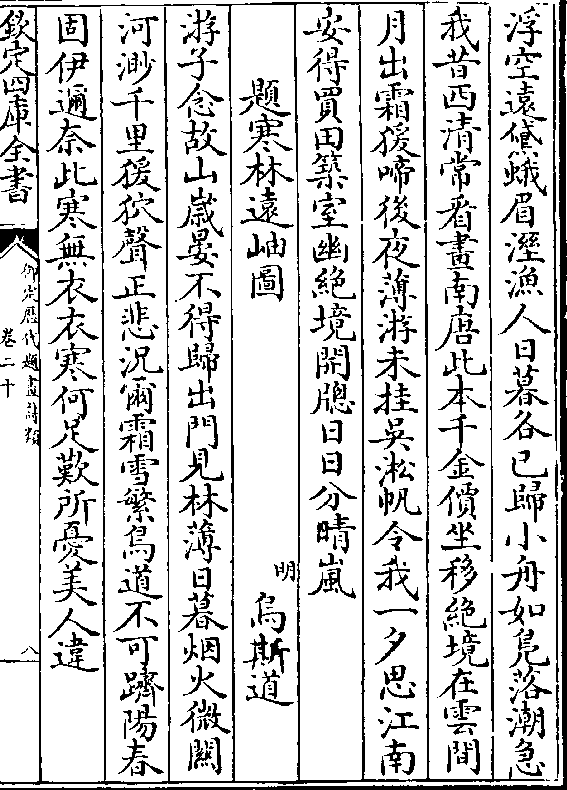 浮空遠黛蛾眉溼漁人日暮各已歸小舟如鳬落潮急
我昔西清常看畫南唐此本千金價坐移絶境在雲間
月出霜猨啼後夜薄游未挂吳淞帆令我一夕思江南
安得買田築室幽絶境開牎日日分晴嵐
題寒林遠岫圖
明 烏斯道
游子念故山歲晏不得歸出門見林薄日暮烟火微關
河渺千里猨狖聲正悲況爾霜雪繁鳥道不可躋陽春
固伊邇奈此寒無衣衣寒何足歎所憂美人違
欽定四庫全書
御定歷代題畫詩類
卷二十
八